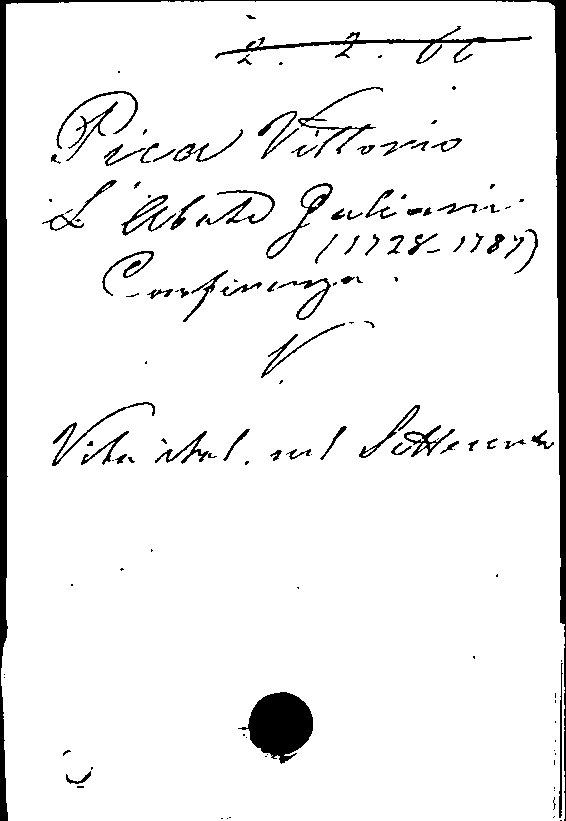 2. 2. 66
Pica Vittorio
L'Abate Galiani
(1728-1787)
Conferenza.
V.
Vita ital. nel Settecento